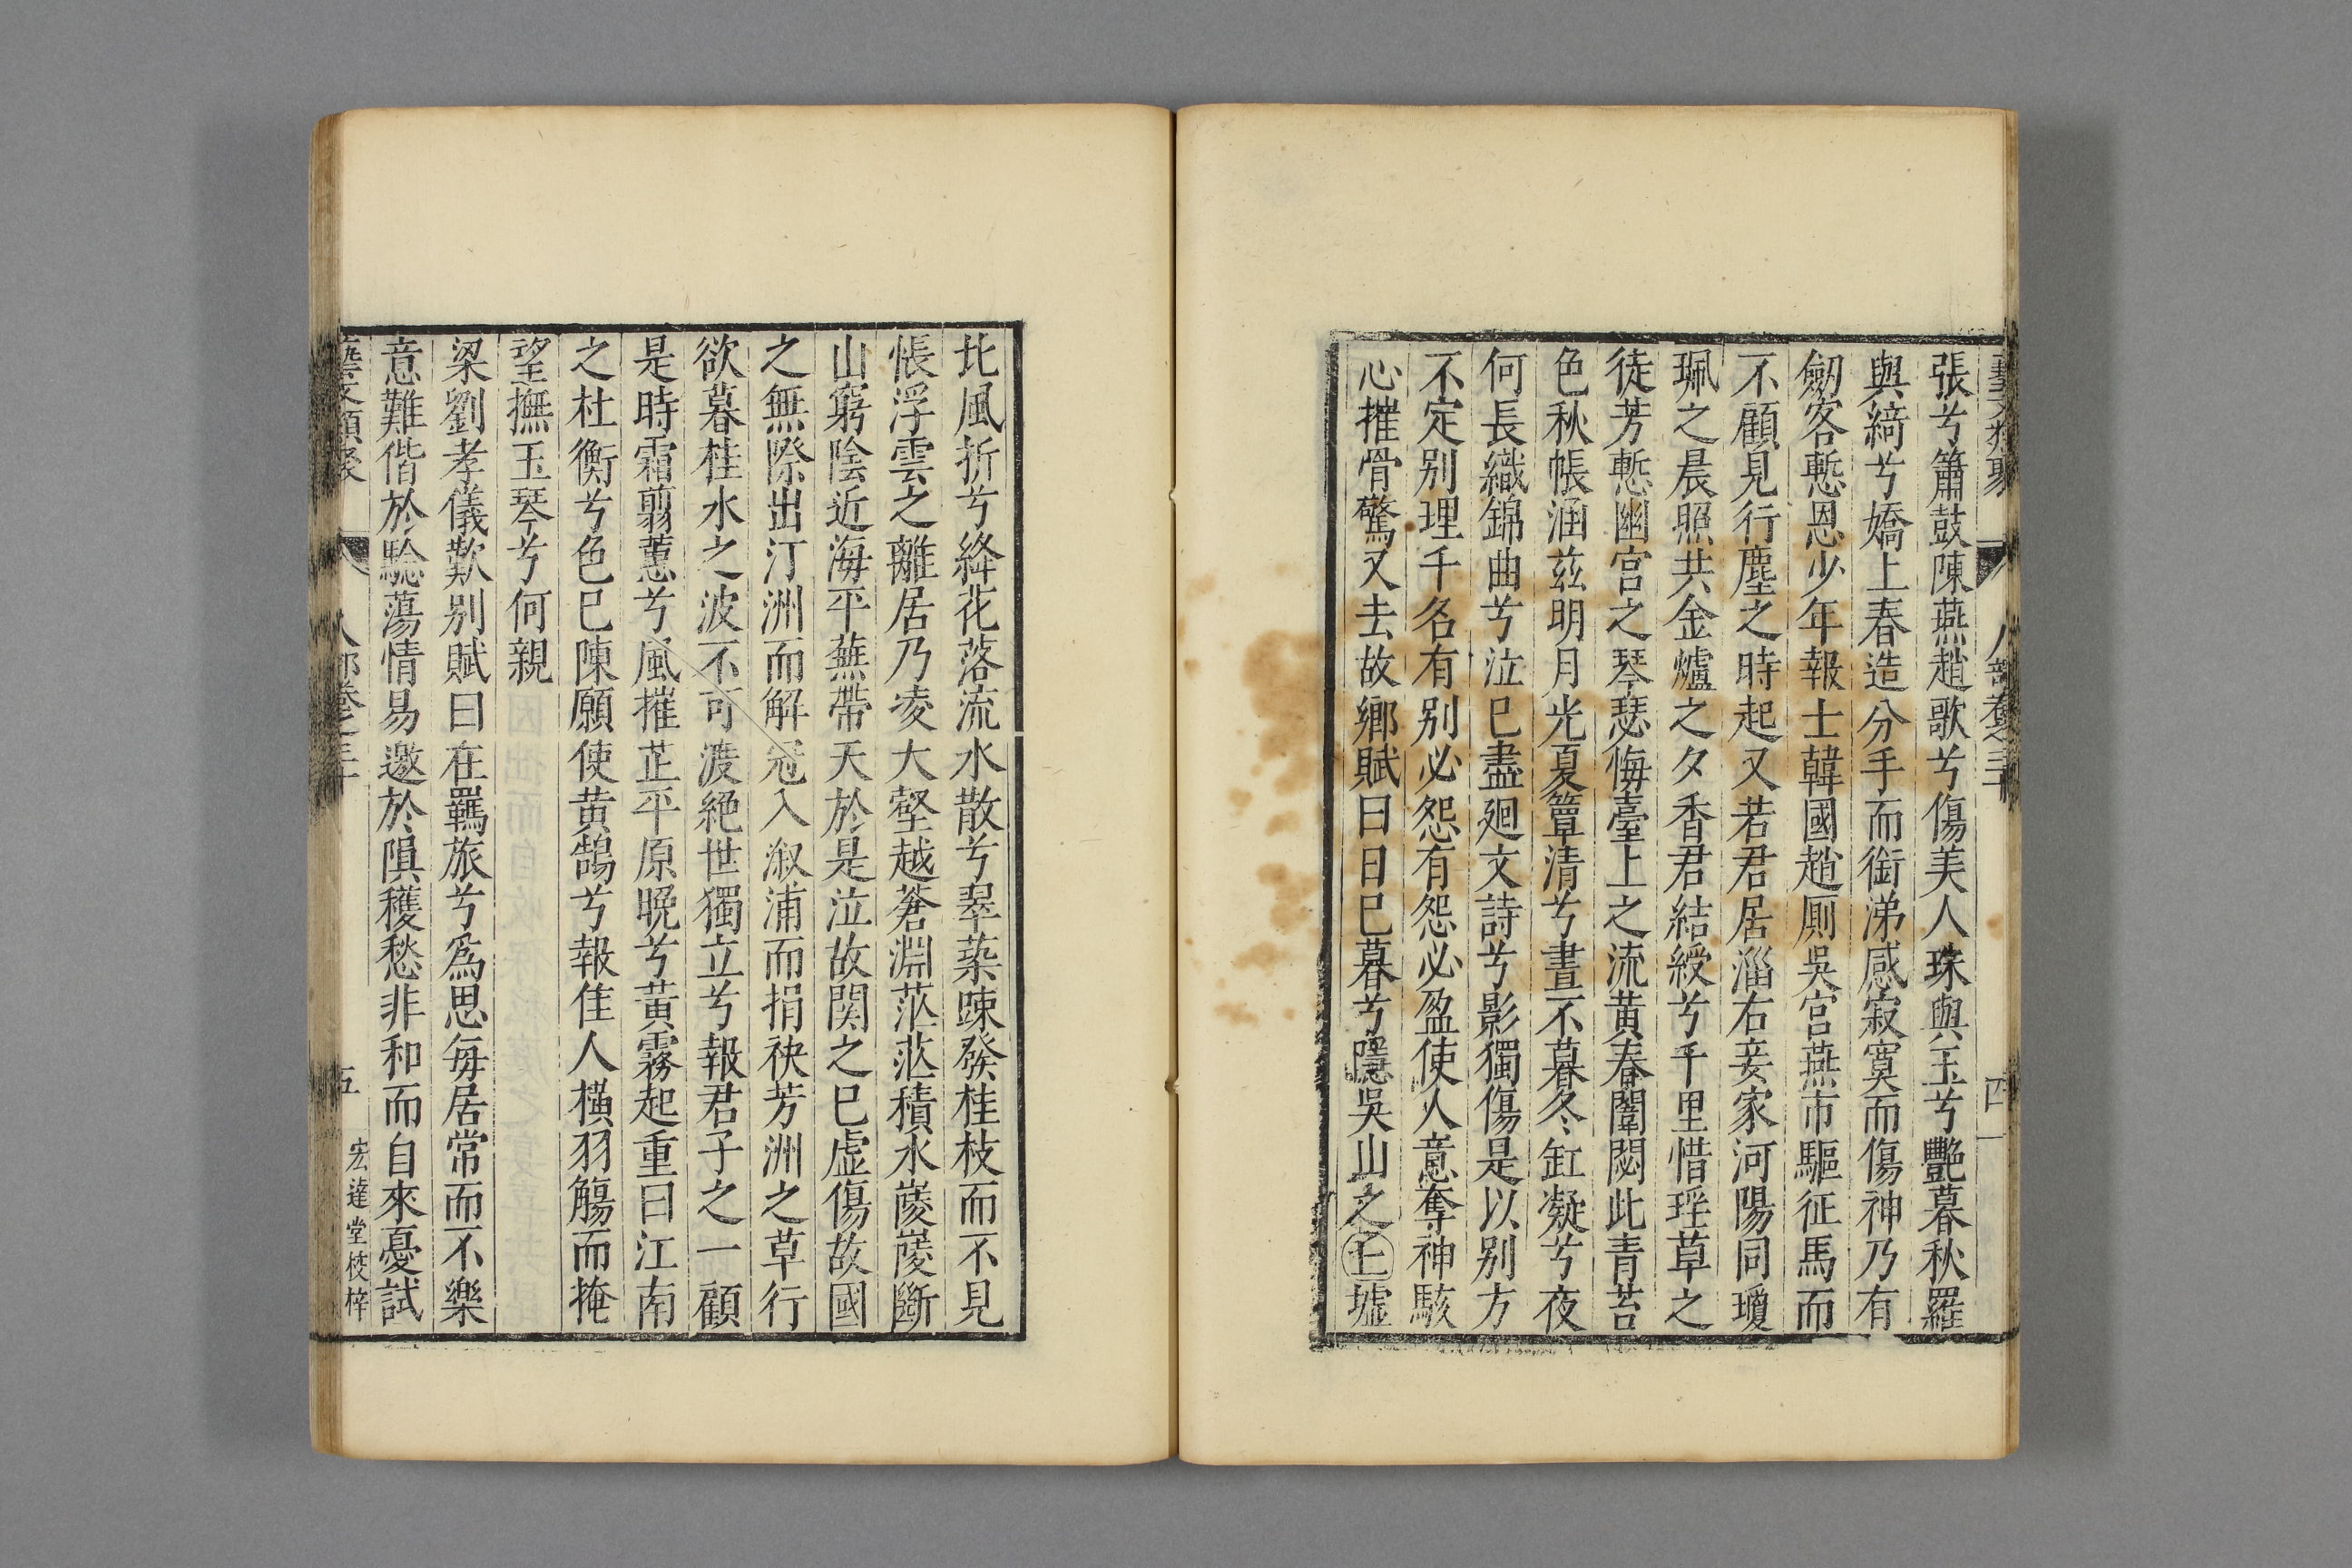 張兮簫鼓陳燕趙歌兮傷美人珠與玉兮艷暮秋羅
與綺兮嬌上春造分手而銜涕感寂寞而傷神乃有
劒客慙恩少年報士韓國趙厠吳宮燕市驅征馬而
不顧見行塵之時起又若君居淄右妾家河陽同瓊
珮之晨照共金爐之夕香君結綬兮千里惜瑶草之
徒芳慙幽宮之琴瑟悔臺上之流黃春闈閟此青苔
色秋帳涵茲明月光夏簟清兮晝不暮冬缸凝兮夜
何長織錦曲兮泣巳盡廻文詩兮影獨傷是以別方
不定別理千名有別必怨有怨必盈使人意奪神駭
心摧骨驚又去故鄉賦曰日巳暮兮隱吳山之丘墟
北風折兮絳花落流水散兮翠蘂踈發桂枝而不見
悵浮雲之離居乃凌大壑越蒼淵茫茫積水崚崚斷
山窮陰近海平蕪帶天於是泣故関之巳虛傷故國
之無際出汀洲而解冠入溆浦而捐袂芳洲之草行
欲暮桂水之波不可渡絕世獨立兮報君子之一顧
是時霜翦蕙兮風摧芷平原晚兮黃霧起重曰江南
之杜衡兮色巳陳願使黃鵠兮報佳人橫羽觴而掩
望撫玉琴兮何親
梁劉孝儀歎別賦曰在羈旅兮爲思每居常而不樂
意難偕於駘蕩情易邀於隕穫愁非和而自來憂試
藝文類聚 人部卷之三十 五 宏達堂校梓